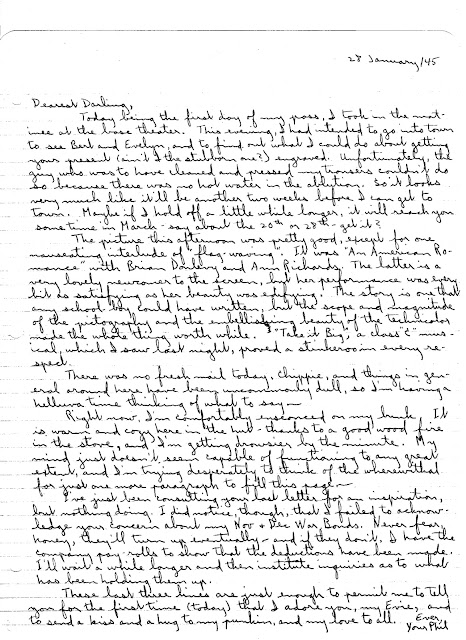 28 January/45
Dearest Darling,
Today being the first day of my pass, I took in the mat-
inee at the base theater. This evening, I had intended to go into town
to see Bert and Evelyn, and to find out what I could do about getting
your present (ain't I the stubborn one?) engraved. Unfortunately, the
guy who was to have cleaned and pressed my trousers couldn't do
so because there was no hot water in the ablution. So it looks
very much like it'll be another two weeks before I can get to
town. Maybe if I hold off a little while longer, it will reach you
sometime in March - say about the 20th or 28th - get it?
The picture this afternoon was pretty good, except for one
nauseating interlude of "flag-waving". It was "An American Ro-
mance" with Brian Donlevy and Ann Richards. The latter is a
very lovely newcomer to the screen, but her performance was every
bit as satisfying as her beauty was edifying. The story is one that
any school boy could have written, but the scope and magnitude
of the pictography and the embellishing beauty of the technicolor
made the whole thing worth while. "Take it Big", a class "C" mus-
ical, which I saw last night, proved a stinkeroo in every re-
spect.
There was no fresh mail today, Chippie, and things in gen-
eral around here have been uncommonly dull, so I'm having a
helluva time thinking of what to say—
Right now, I'm comfortably ensconced on my bunk. It
is warm and cozy here in the hut - thanks to a good wood fire
in the stove, and I'm getting drowsier by the minute. My
mind just doesn't seem capable of functioning to any great
extent, and I'm trying desperately to think of the wherewithal
for just one more paragraph to fill this page—
I've just been consulting your last letter for an inspiration,
but nothing doing. I did notice, though, that I failed to acknow-
ledge your concern about my Nov + Dec War Bonds. Never fear,
honey, they'll turn up eventually - and if they don't, I have the
company pay-rolls to show that the deductions have been made.
I'll wait a while longer and then institute inquiries as to what
has been holding them up.
These last three lines are just enough to permit me to tell
you for the first time (today) that I adore you, my Evvie, and
to send a kiss and a hug to my punkin, and my love to all.
Ever,
Your Phil